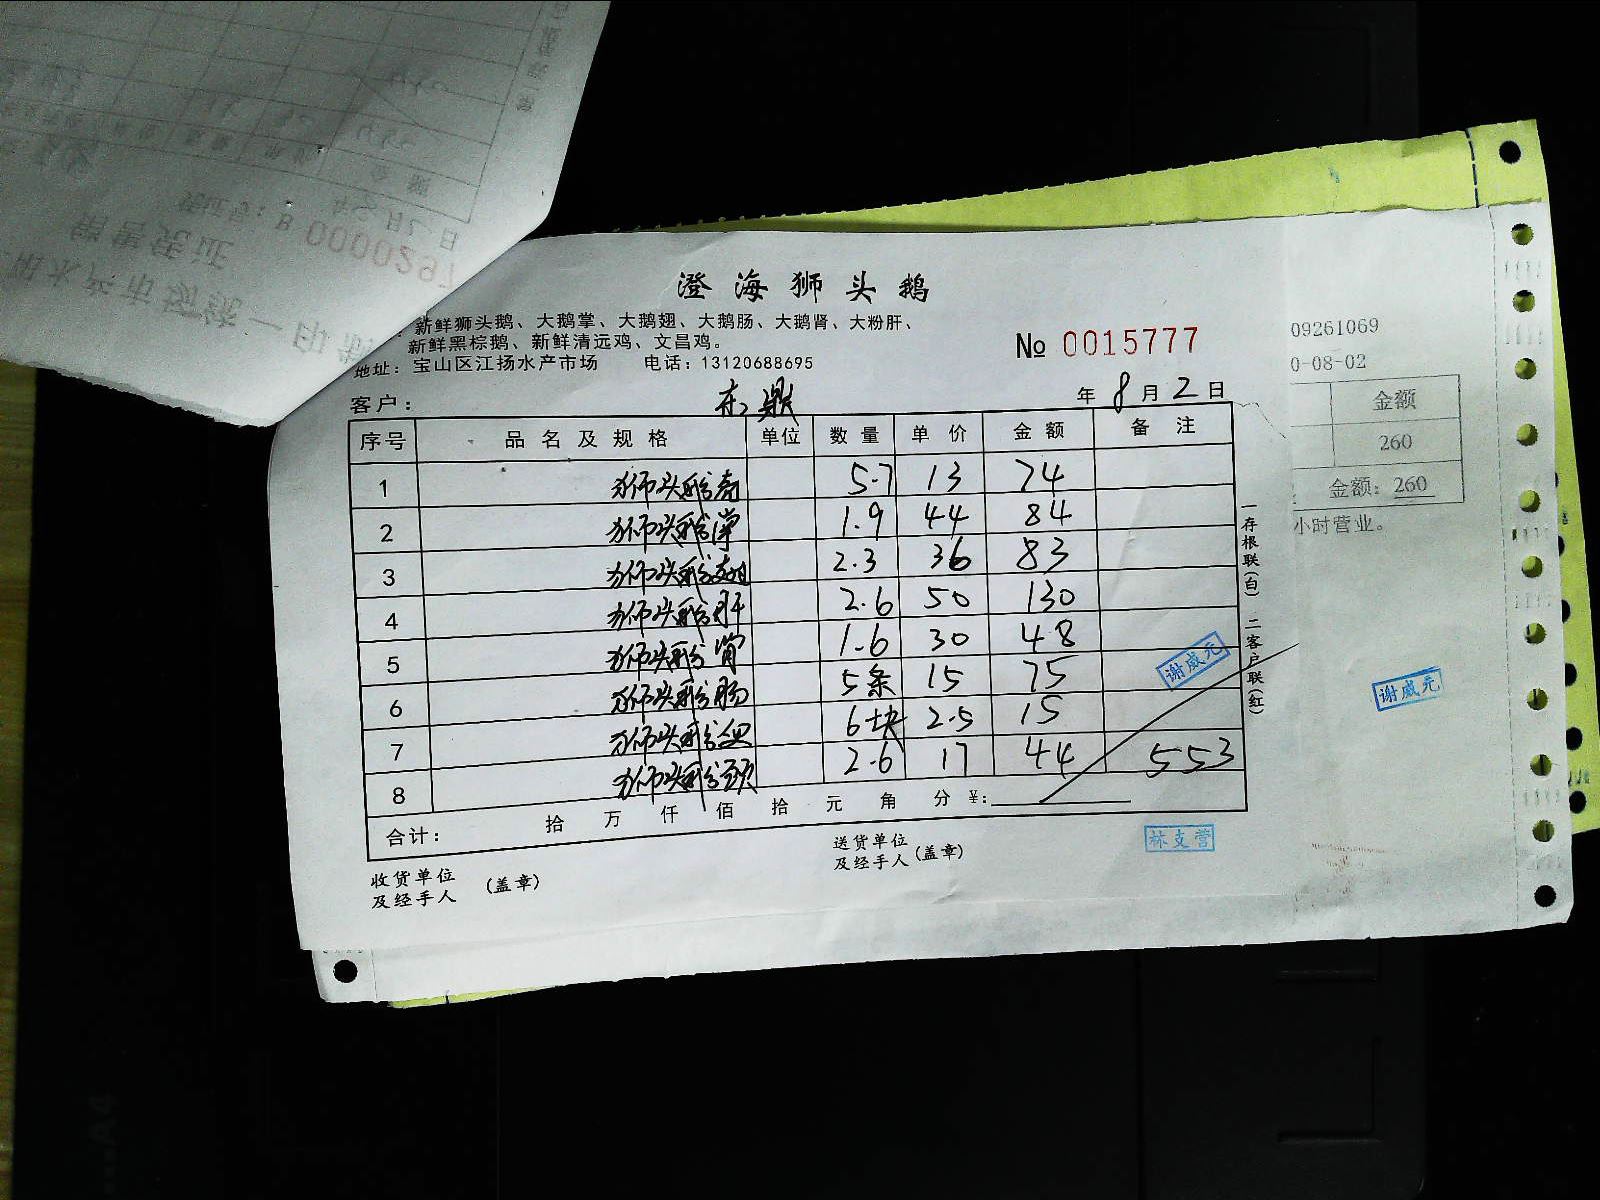 澄海狮头鹅
新鲜狮头鹅、大鹅掌、大鹅翅、大鹅肠、大鹅肾、大粉肝、
新鲜黑棕鹅、新鲜清远鸡、文昌鸡。
地址：宝山区江扬水产市场 电话：13120688695
№ 0015777
客户： 东鼎 年 8 月 2 日
序号 品名及规格 单位 数量 单价 金额 备注
1 狮头鹅 5.7 13 74
2 狮头鹅掌 1.9 44 84
3 狮头鹅翅 2.3 36 83
4 狮头鹅肝 2.6 50 130
5 狮头鹅肾 1.6 30 48
6 狮头鹅肠 5条 15 75
7 狮头鹅 6块 2.5 15
8 狮头鹅头 2.6 17 44 553
合计： 拾 万 仟 佰 拾 元 角 分 ¥:
收货单位
及经手人 (盖章)
送货单位
及经手人 (盖章)
一存根联(白) 二客户联(红)
谢威元
林支营
09261069
0-08-02
金额
260
金额: 260
小时营业。
谢威元
销售凭证
凭证号：B 0000297
A4